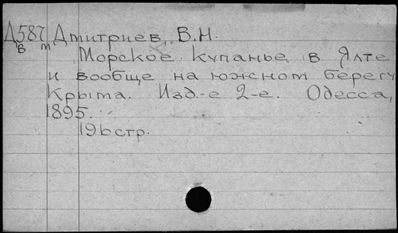 Д587 Дмитриев, В.Н.
в т
Морское купанье в Ялте
и вообще на южном берегу
Крыма. Изд-е 2-е. Одесса,
1895.
196 стр.